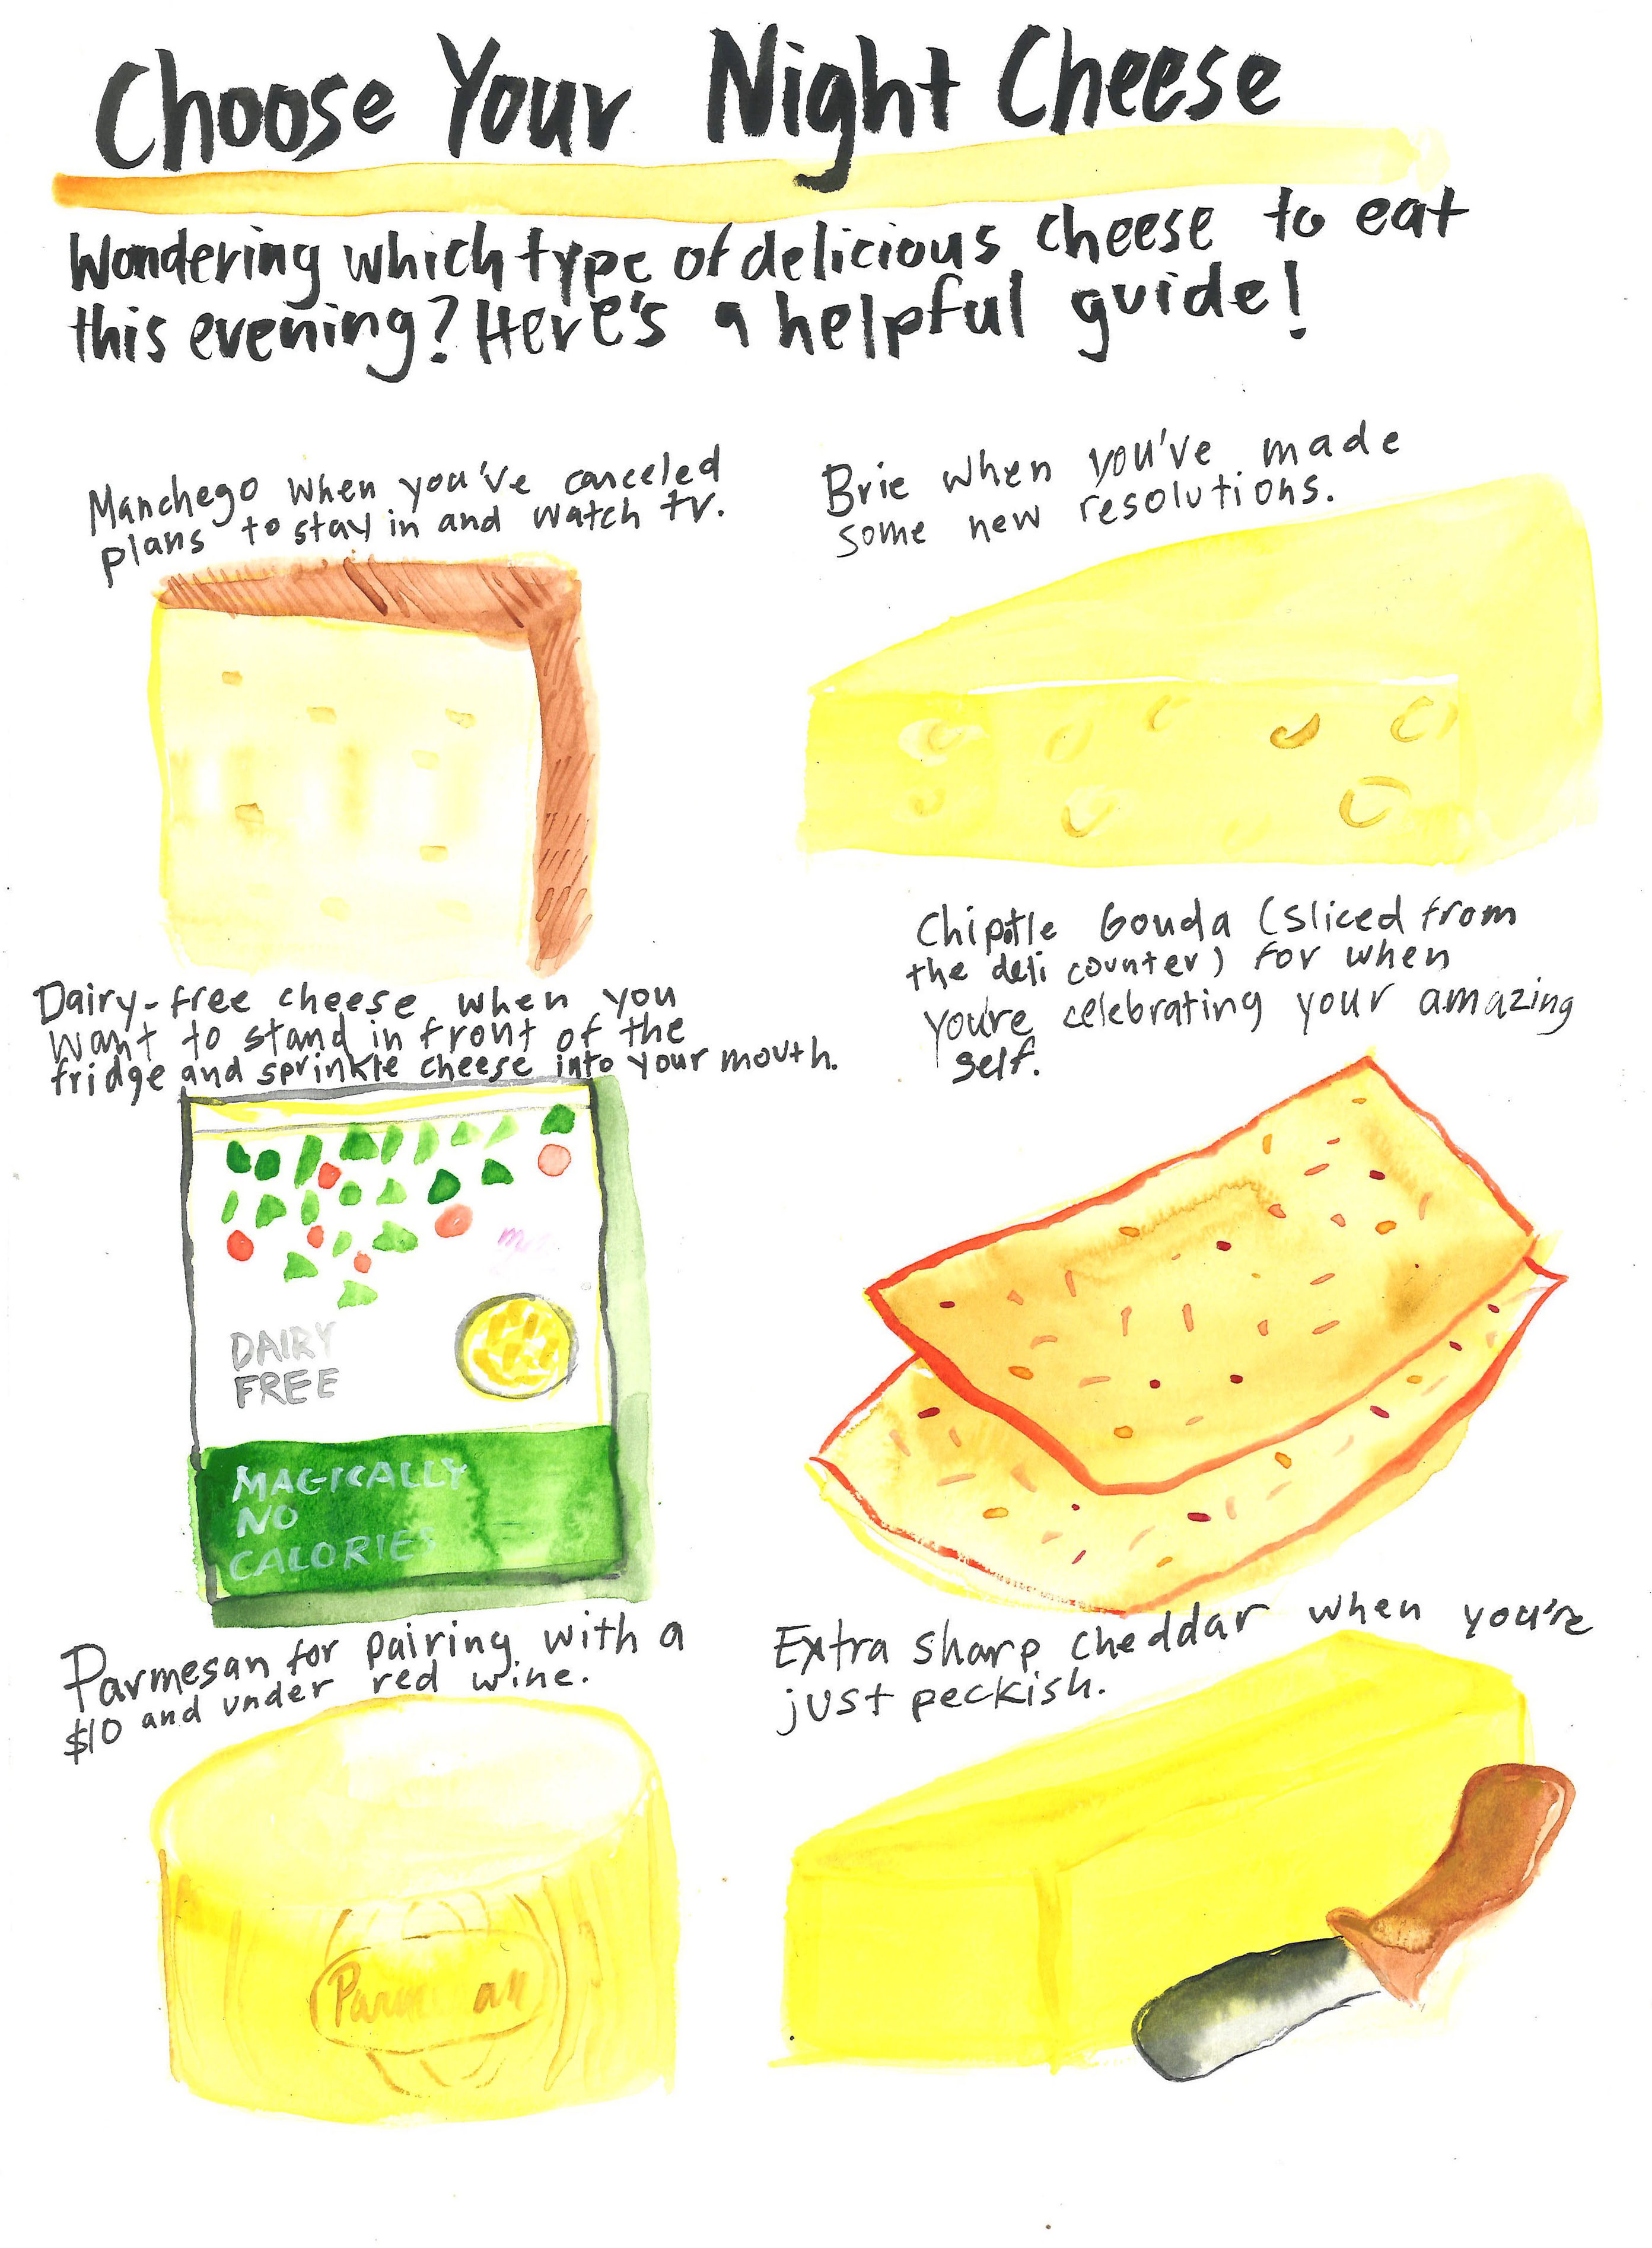 Choose Your Night Cheese
Wondering which type of delicious cheese to eat
this evening? Here's a helpful guide!
Manchego when you've canceled
plans to stay in and watch tv.
Brie when you've made
some new resolutions.
Dairy-free cheese when you
want to stand in front of the
fridge and sprinkle cheese into your mouth.
DAIRY
FREE
MAGICALLY
NO
CALORIES
Chipotle Gouda (sliced from
the deli counter) for when
you're celebrating your amazing
self.
Parmesan for pairing with a
$10 and under red wine.
Extra sharp cheddar when you're
just peckish.